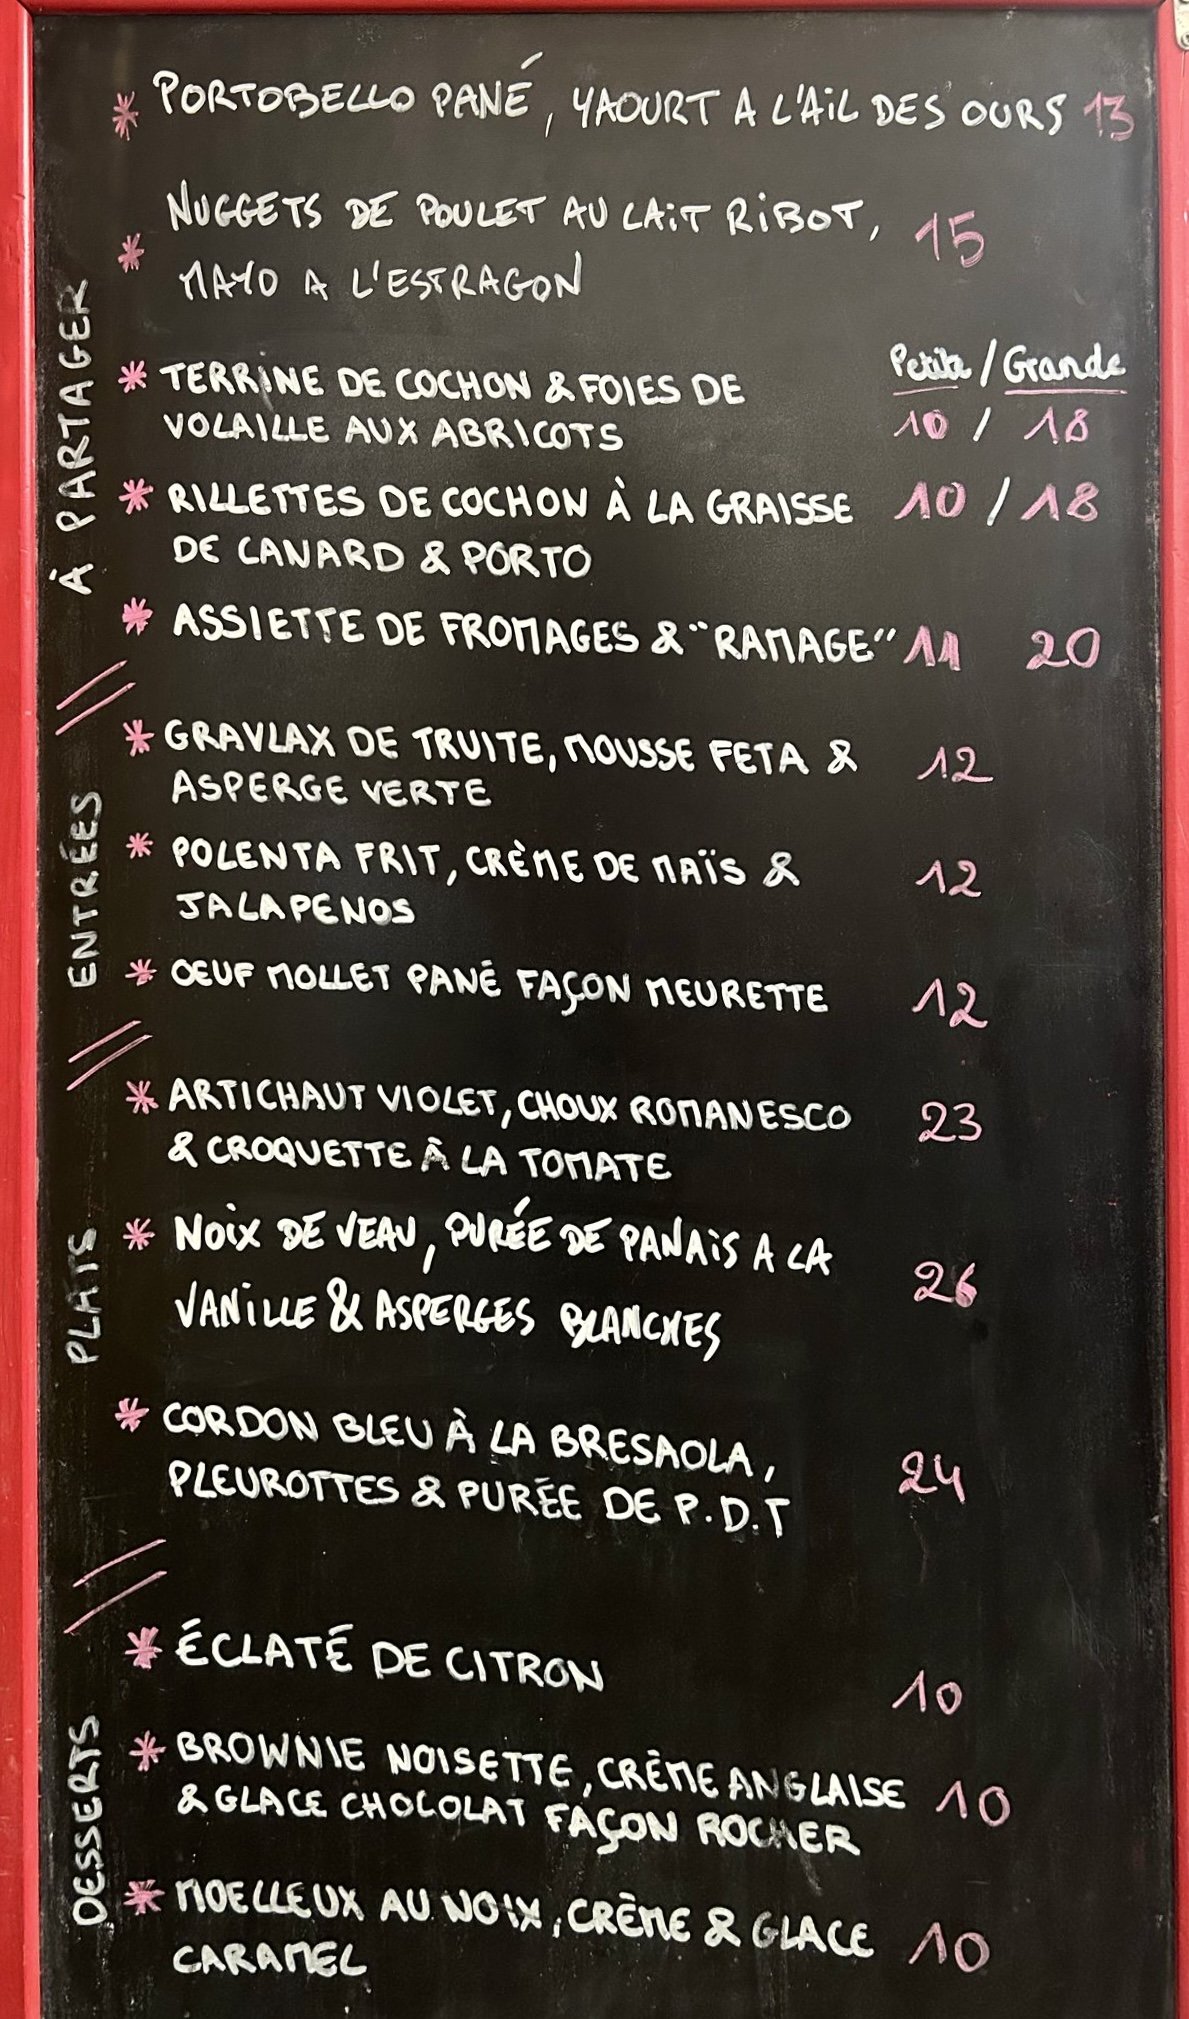 À PARTAGER
* PORTOBELLO PANÉ, YAOURT A L'AIL DES OURS 13
* NUGGETS DE POULET AU LAIT RIBOT, 15
MAYO A L'ESTRAGON
Petite / Grande
* TERRINE DE COCHON & FOIES DE
VOLAILLE AUX ABRICOTS 10 / 18
* RILLETTES DE COCHON À LA GRAISSE 10 / 18
DE CANARD & PORTO
* ASSIETTE DE FROMAGES & "RAMAGE" 11 20
ENTRÉES
* GRAVLAX DE TRUITE, MOUSSE FETA & 12
ASPERGE VERTE
* POLENTA FRIT, CRÈME DE MAÏS & 12
JALAPENOS
* OEUF MOLLET PANÉ FAÇON MEURETTE 12
PLATS
* ARTICHAUT VIOLET, CHOUX ROMANESCO 23
& CROQUETTE À LA TOMATE
* NOIX DE VEAU, PURÉE DE PANAIS A LA 26
VANILLE & ASPERGES BLANCHES
* CORDON BLEU À LA BRESAOLA, 24
PLEUROTTES & PURÉE DE P.D.T
DESSERTS
* ÉCLATÉ DE CITRON 10
* BROWNIE NOISETTE, CRÈME ANGLAISE 10
& GLACE CHOCOLAT FAÇON ROCHER
* MOELLEUX AU NOIX, CRÈME & GLACE 10
CARAMEL